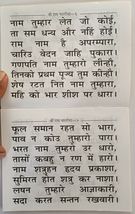 श्री राम चालीसा - 8
नाम तुम्हार लेत जो कोई,
ता सम धन्य और नहिं होई।
राम नाम है अपरम्पारा,
चारिउ वेदन जाहि पुकारा।
गणपति नाम तुम्हारो लीन्ही,
तिनको प्रथम पूज्य तुम कीन्ही।
शेष रटत नित नाम तुम्हारा,
महि को भार शीश पर धारा।
श्री राम चालीसा
फूल समान रहत सो भारा,
पाव न कोउ तुम्हारो पारा।
भरत नाम तुम्हरो उर धारो,
तासों कबहु न रण में हारो।
नाम शत्रुहन हृदय प्रकाशा,
सुमिरत होत शत्रु कर नाशा।
लषन तुम्हारे आज्ञाकारी,
सदा करत सन्तन रखवारी।